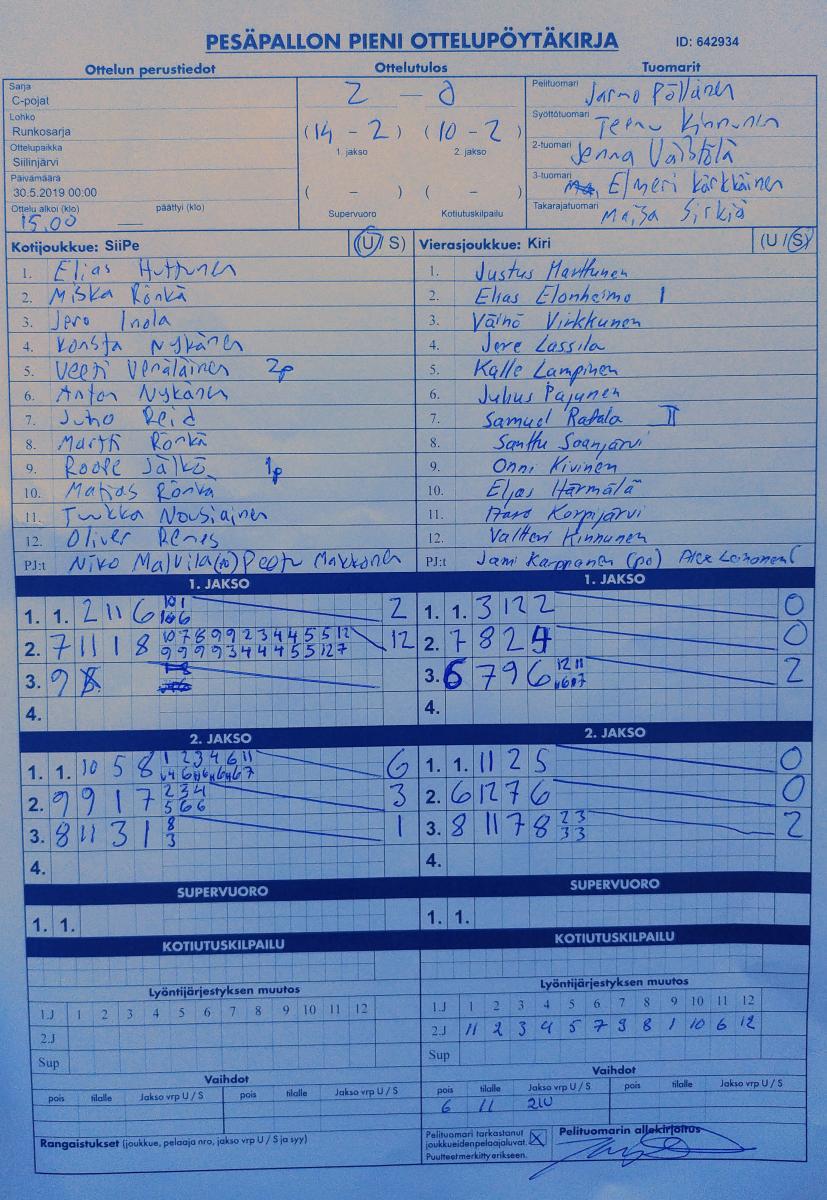 PESÄPALLON PIENI OTTELUPÖYTÄKIRJA ID: 642934
Ottelun perustiedot Ottelutulos Tuomarit
Sarja
C-pojat
Lohko
Runkosarja
Ottelupaikka
Siilinjärvi
Päivämäärä
30.5.2019 00:00
Ottelu alkoi (klo) päättyi (klo)
15.00 —
2 — 0
(14 - 2) (10 - 2)
1. jakso 2. jakso
( - ) ( - )
Supervuoro Kotiutuskilpailu
Pelituomari Jarmo Pöllänen
Syöttötuomari Teemu Kinnunen
2-tuomari Jenna Väistölä
3-tuomari Elmeri Kärkkäinen
Takarajatuomari Maisa Sirkiä
Kotijoukkue: SiiPe (U / S) Vierasjoukkue: Kiri (U / S)
1. Elias Huttunen
2. Miska Rönkä
3. Jero Inola
4. Konsta Nykänen
5. Veeti Venäläinen 2p
6. Anton Nykänen
7. Juho Reid
8. Martti Rönkä
9. Roope Jälkö 1p
10. Matias Rönkä
11. Tuukka Nousiainen
12. Oliver Renes
PJ:t Niko Malvila Peetu Makkonen
1. Justus Marttunen
2. Elias Elonheimo I
3. Väinö Virkkunen
4. Jere Lassila
5. Kalle Lampinen
6. Julius Pajunen
7. Samuel Ratala II
8. Santtu Saanjärvi
9. Onni Kivinen
10. Elias Härmälä
11. Aaro Korpijärvi
12. Valtteri Kinnunen
PJ:t Jami Karppanen (po) Alex
1. JAKSO 1. JAKSO
1. 1. 2 11 6 10 1 2
10 6
2. 7 11 1 8 10 7 8 9 9 2 3 4 4 5 5 12 12
9 9 9 9 3 4 4 4 5 5 12 7
3. 9
4.
1. 1. 3 12 2 0
2. 7 8 2 4 0
3. 6 7 9 6 12 11 2
4.
2. JAKSO 2. JAKSO
1. 1. 10 5 8 1 2 3 4 6 11 6
2. 9 9 1 7 2 3 4 3
5 6 6
3. 8 11 3 1 8 1
3
4.
1. 1. 11 2 5 0
2. 6 12 7 6 0
3. 8 11 7 8 2 3 2
3 3
4.
SUPERVUORO SUPERVUORO
1. 1. 1. 1.
KOTIUTUSKILPAILU KOTIUTUSKILPAILU
Lyöntijärjestyksen muutos Lyöntijärjestyksen muutos
1.J 1 2 3 4 5 6 7 8 9 10 11 12
2.J
Sup
1.J 1 2 3 4 5 6 7 8 9 10 11 12
2.J 11 2 3 4 5 7 9 8 1 10 6 12
Sup
Vaihdot Vaihdot
pois tilalle Jakso vrp U / S pois tilalle Jakso vrp U / S
pois tilalle Jakso vrp U / S pois tilalle Jakso vrp U / S
6 11 21U
Rangaistukset (joukkue, pelaaja nro, jakso vrp U / S ja syy)
Pelituomari tarkastanut
joukkueiden pelaajaluvat. X
Puutteet merkitty erikseen.
Pelituomarin allekirjoitus